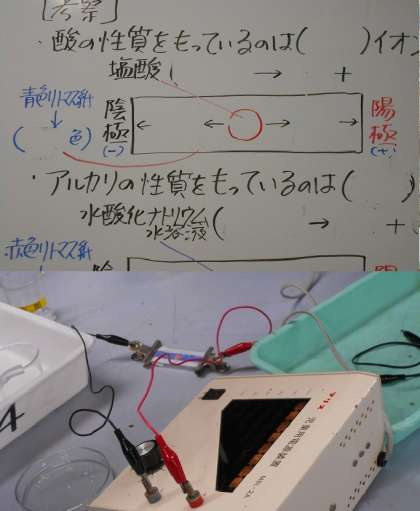 [考察]
・酸の性質をもっているのは(　　)イオン
塩酸(　　→　　+
青色リトマス紙
(　色)
陰極(-)
陽極(+)
・アルカリの性質をもっているのは(　　)
水酸化ナトリウム水溶液(　　→　　+
赤色リトマス紙
児童用電源装置
4